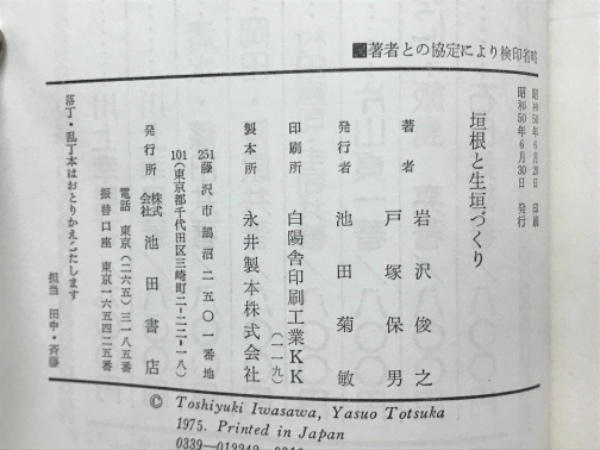 著者との協定により検印省略
昭和50年6月20日 印刷
昭和50年6月30日 発行
垣根と生垣づくり
著者 岩沢俊之
戸塚保男
発行者 池田菊敏
印刷所 白陽舎印刷工業KK
(一一九)
製本所 永井製本株式会社
251藤沢市鵠沼二五〇一番地
101(東京都千代田区三崎町二-二二-一八)
発行所 株式会社 池田書店
電話 東京(二六五)三一八五番
振替口座 東京一六五四二五番
落丁・乱丁本はおとりかえいたします
担当 田中・斉藤
© Toshiyuki Iwasawa, Yasuo Totsuka
1975. Printed in Japan